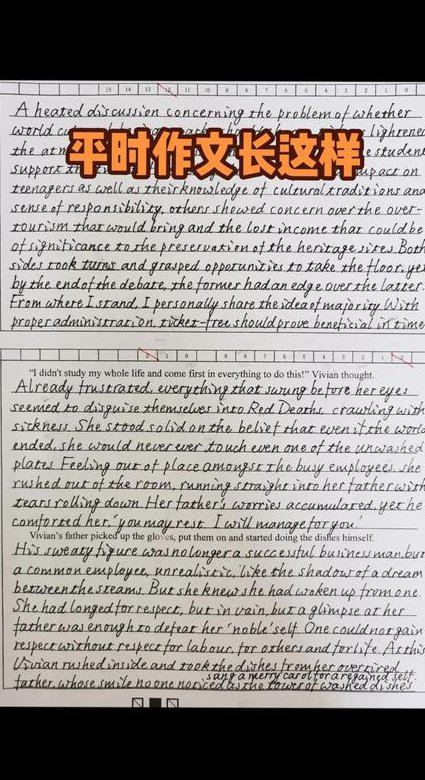 15 14 13 12 11 10 9 8 7 6 5 4 3 2 1 0
A heated discussion concerning the problem of whether
world lightened
the atm student
平时作文长这样
support impact on
teenagers as well as their knowledge of cultural traditions and
sense of responsibility, others showed concern over the over-
tourism that would bring and the lost income that could be
of significance to the preservation of the heritage sites. Both
sides took turns and grasped opportunities to take the floor, yet
by the end of the debate, the former had an edge over the latter.
From where I stand, I personally share the idea of majority. With
proper administration, ticket-free should prove beneficial in time
"I didn't study my whole life and come first in everything to do this!" Vivian thought.
Already frustrated, everything that swung before her eyes
seemed to disguise themselves into Red Deaths, crawling with
sickness. She stood solid on the belief that even if the world
ended, she would never ever touch even one of the unwashed
plates. Feeling out of place amongst the busy employees, she
rushed out of the room, running straight into her father with
tears rolling down. Her father's worries accumulated, yet he
comforted her, 'you may rest. I will manage for you.'
Vivian's father picked up the gloves, put them on and started doing the dishes himself.
His sweaty figure was no longer a successful business man, but
a common employee, unrealistic, like the shadow of a dream
between the steams. But she knew she had woken up from one.
She had longed for respect, but in vain, but a glimpse at her
father was enough to defeat her 'noble' self. One could not gain
respect without respect for labour, for others and for life. At this
Vivian rushed inside and took the dishes from her overtired
sang a merry carol for a regained self.
father, whose smile no one noticed as the tower of washed dishes